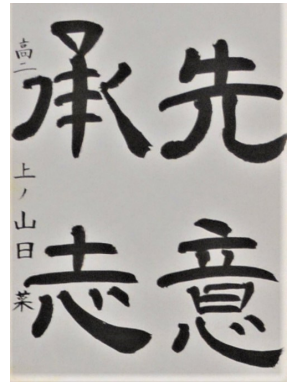 先意
承志
高二 上ノ山日菜